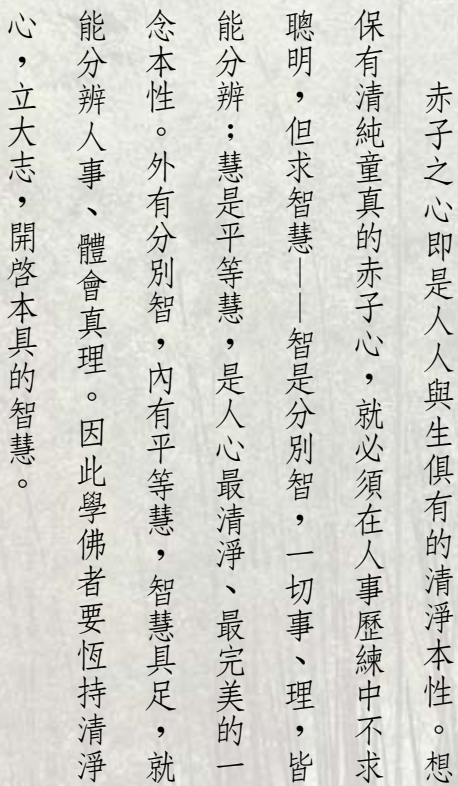 赤子之心即是人人與生俱有的清淨本性。想
保有清純童真的赤子心，就必須在人事歷練中不求
聰明，但求智慧——智是分別智，一切事、理，皆
能分辨；慧是平等慧，是人心最清淨、最完美的一
念本性。外有分別智，內有平等慧，智慧具足，就
能分辨人事、體會真理。因此學佛者要恆持清淨
心，立大志，開啓本具的智慧。